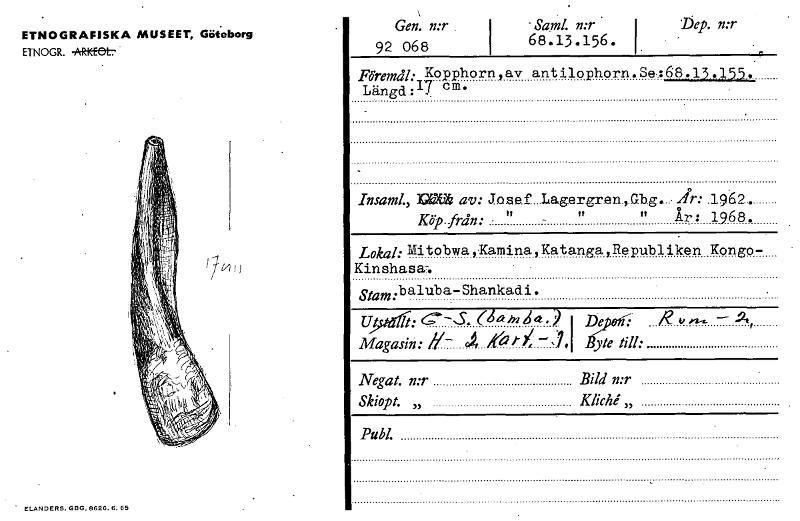 ETNOGRAFISKA MUSEET, Göteborg
ETNOGR. ARKEOL.
17 cm
ELANDERS, GBG, 8626. 6. 65
Gen. n:r Saml. n:r Dep. n:r
92 068 68.13.156.
Föremål: Kopphorn,av antilophorn.Se:68.13.155.
Längd:17 cm.
Insaml., av: Josef Lagergren,Gbg. År: 1962.
Köp från: " " " År: 1968.
Lokal: Mitobwa,Kamina,Katanga,Republiken Kongo-
Kinshasa.
Stam: baluba-Shankadi.
Utställt: G-S. (bamba.) Depon: Rum - 2,
Magasin: H- 2 Kart.- 9. Byte till:
Negat. n:r Bild n:r
Skiopt. „ Kliché „
Publ.